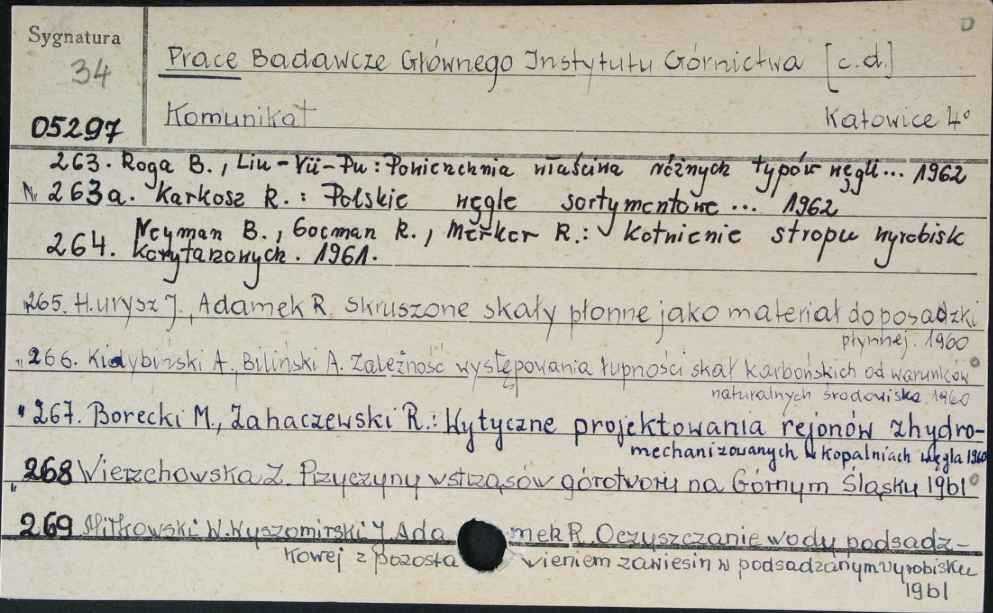 D
Sygnatura
34
Prace Badawcze Głównego Instytutu Górnictwa [c.d.]
Komunikat Katowice 4°
05297
263. Roga B., Liu-Vii-Pu: Powierzchnia właściwa różnych typów węgli... 1962
263a. Karkosz R.: Polskie węgle sortymentowe ... 1962
Neyman B., Gocman R., Merker R.: Kotwienie stropu wyrobisk
264. Korytarzowych. 1961.
265. Hurysz J., Adamek R. Skruszone skały płonne jako materiał do posadzki
płynnej. 1960
" 266. Kidybiński A., Biliński A. Zależność występowania łupności skał karbońskich od warunków
naturalnych środowiska 1960
" 267. Borecki M., Zahaczewski R.: Wytyczne projektowania rejonów zhydro-
mechanizowanych w kopalniach węgla 1960
" 268 Wierzchowska Z. Przyczyny wstrząsów górotworu na Górnym Śląsku 1961
269 Witkowski W. Wyszomirski J. Adamek R. Oczyszczanie wody podsadz-
kowej z pozostawieniem zawiesin w podsadzanym wyrobisku
1961